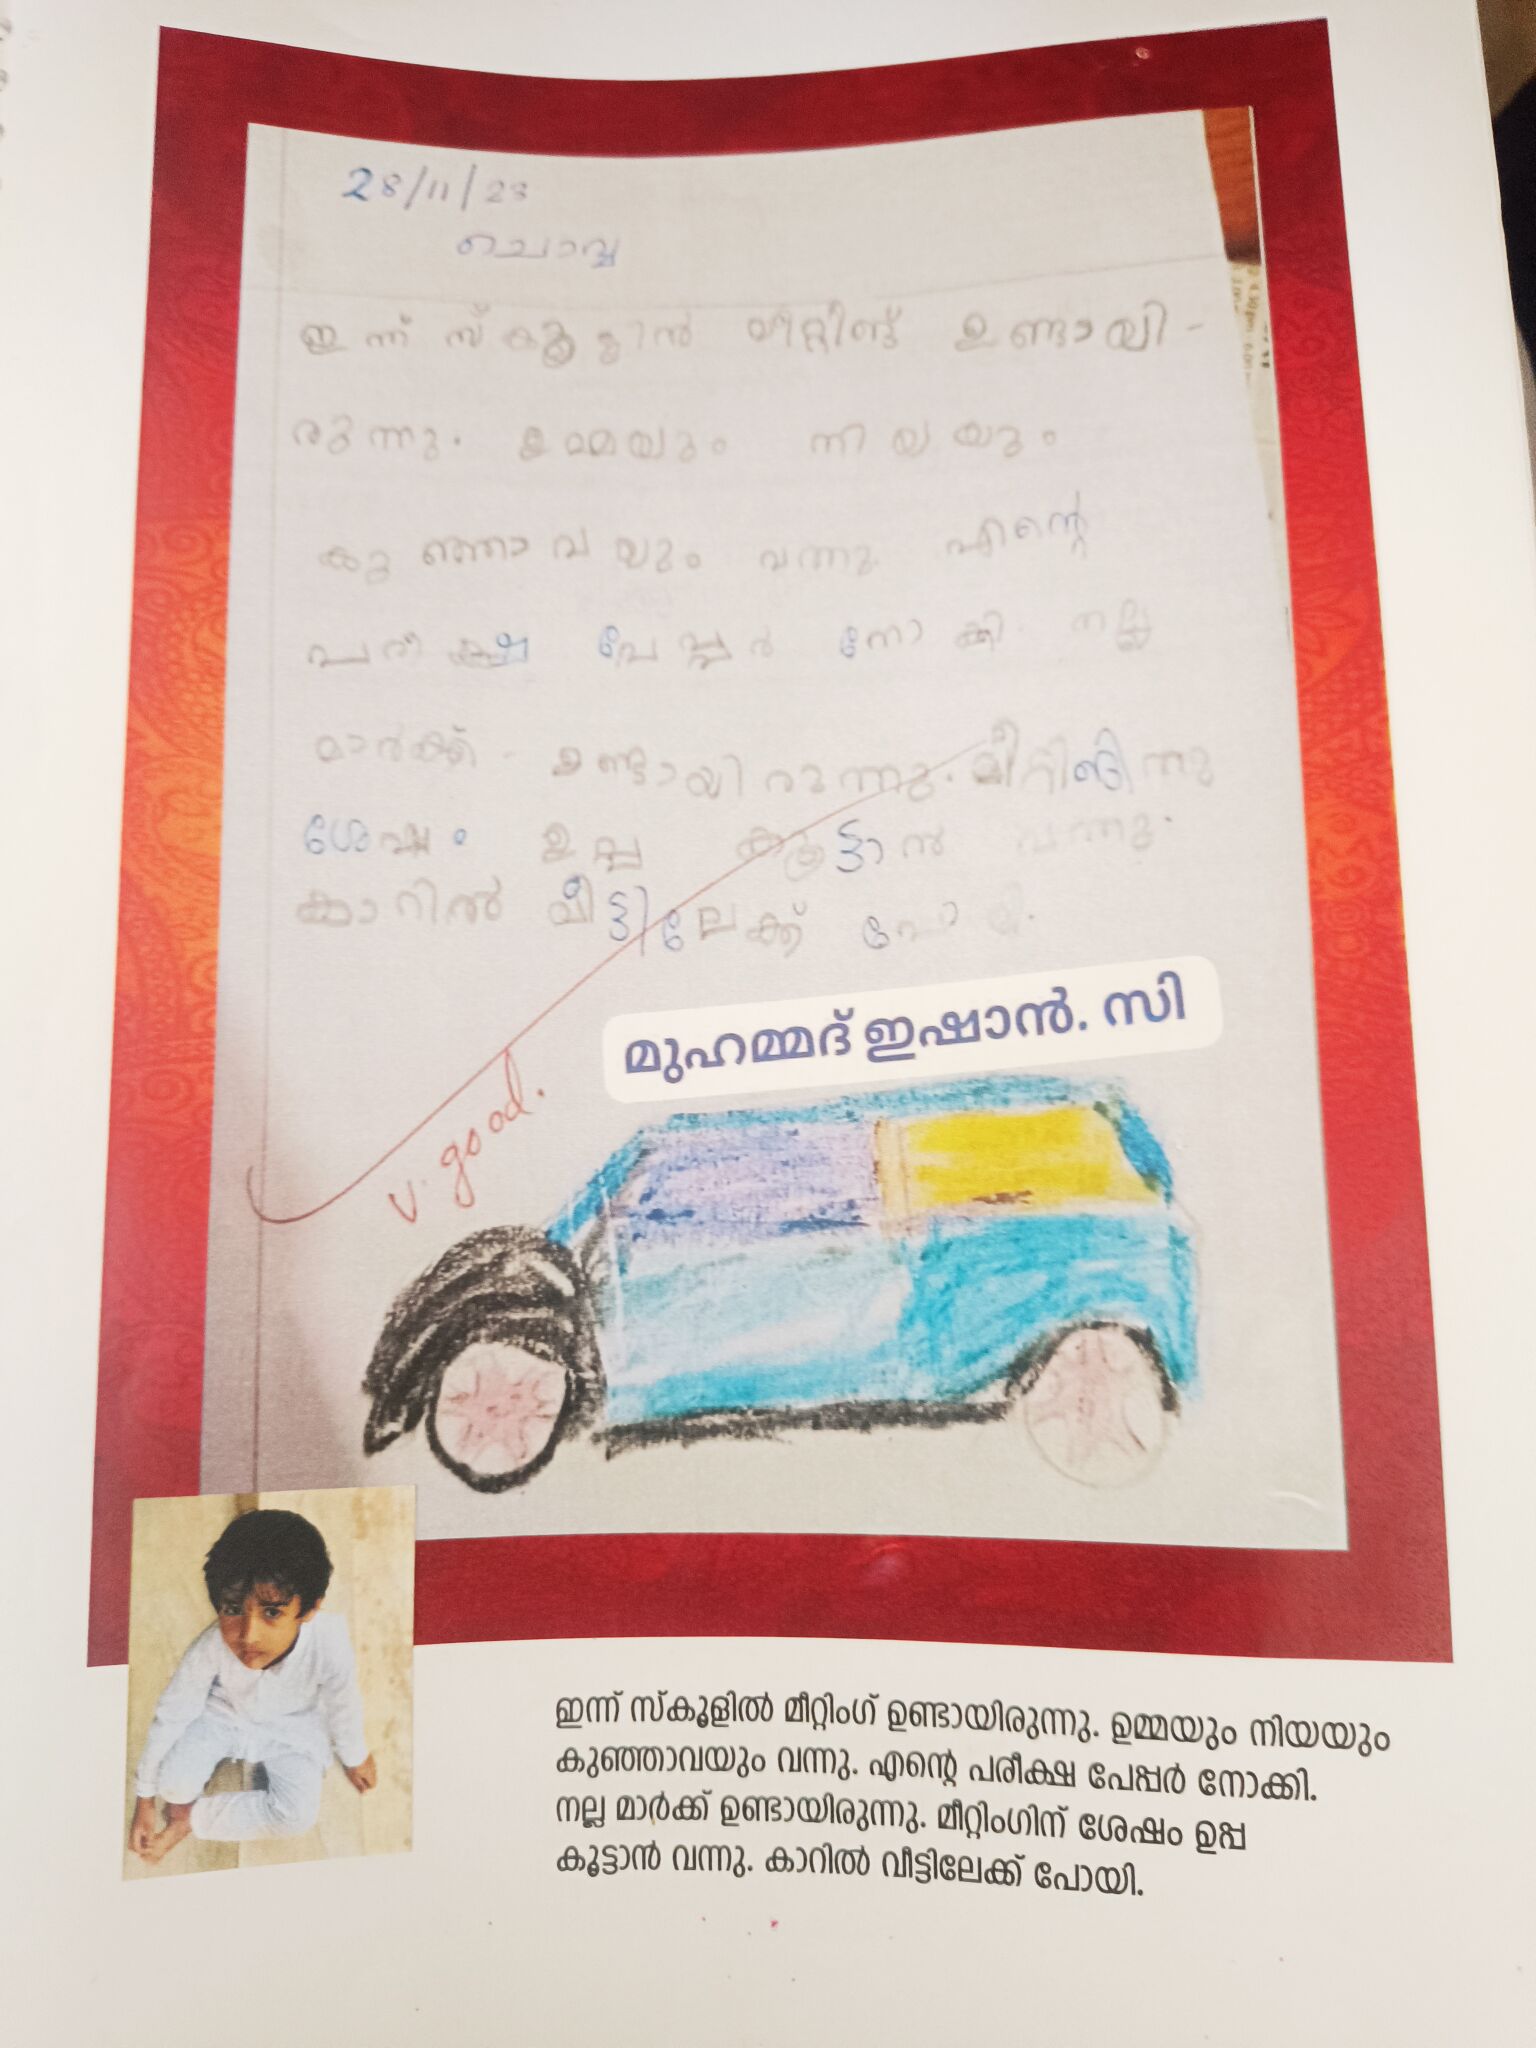 28/11/23
ചൊവ്വ
ഇന്ന് സ്കൂളിൽ മീറ്റീങ് ഉണ്ടായി-
രുന്നു. ഉമ്മയും നിയയും
കുഞ്ഞാവയും വന്നു. എന്റെ
പരീക്ഷ പേപ്പർ നോക്കി. നല്ല
മാർക്ക് ഉണ്ടായിരുന്നു. മീറ്റിങിന്നു
ശേഷം ഉപ്പ കൂട്ടാൻ വന്നു.
കാറിൽ വീട്ടിലേക്ക് പോയി.
മുഹമ്മദ് ഇഷാൻ. സി
v. good.
ഇന്ന് സ്കൂളിൽ മീറ്റിംഗ് ഉണ്ടായിരുന്നു. ഉമ്മയും നിയയും
കുഞ്ഞാവയും വന്നു. എന്റെ പരീക്ഷ പേപ്പർ നോക്കി.
നല്ല മാർക്ക് ഉണ്ടായിരുന്നു. മീറ്റിംഗിന് ശേഷം ഉപ്പ
കൂട്ടാൻ വന്നു. കാറിൽ വീട്ടിലേക്ക് പോയി.